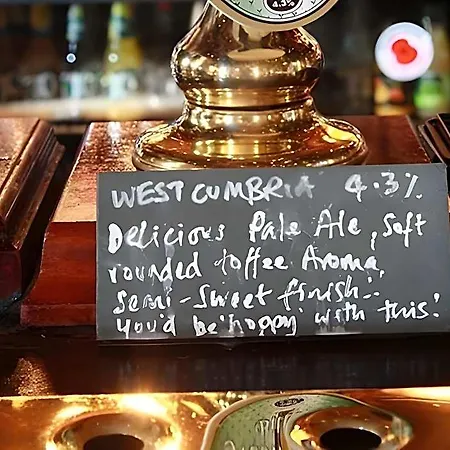 4.3%
WEST CUMBRIA 4.3%
Delicious Pale Ale, Soft
rounded toffee Aroma,
Semi-Sweet finish!
you'd be 'hoppy' with this!